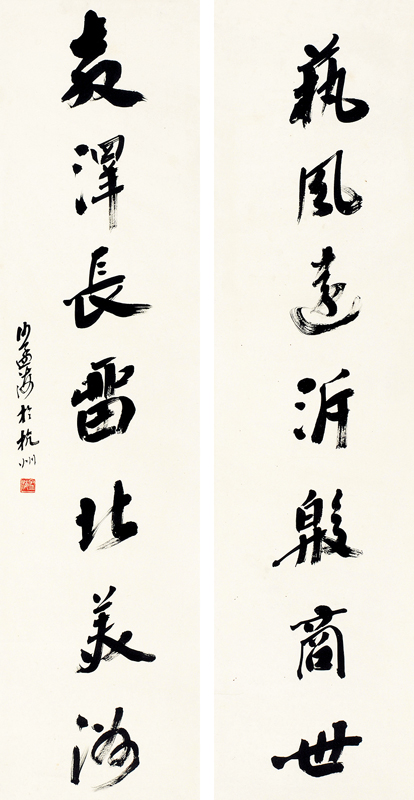 藝風遠泝殷商世
教澤長畱北美洲
沙孟海於杭州